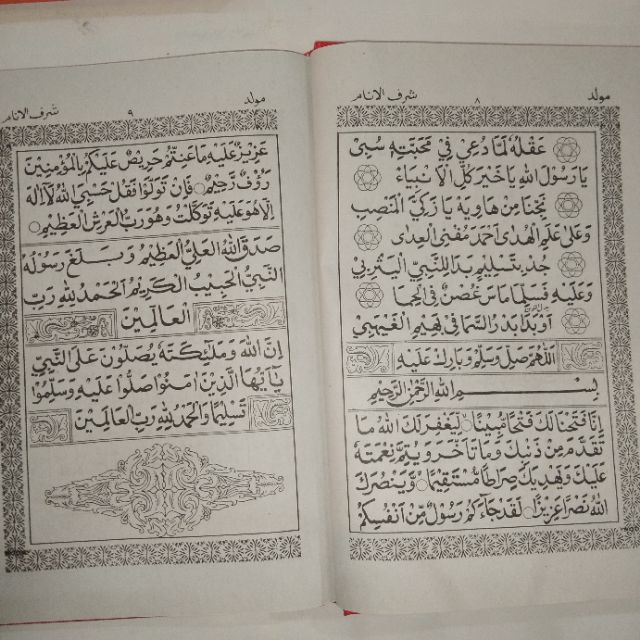 مولد
٨
شرف الانام
عَقْلُهُ لَمَّا دُعِيْ فِيْ مَحَبَّتِهِ سُبِيْ
يَا رَسُوْلَ اللهِ يَا خَيْرَ كُلِّ الْاَنْبِيَاءْ
نَجِّنَا مِنْ هَاوِيَهْ يَا زَكِيَّ الْمَنْصَبِ
وَعَلَى عَلَمِ الْهُدَى اَحْمَدَ مُفْنِي الْعِدَى
جُدْ بِتَسْلِيْمٍ بَدَا لِلنَّبِيِّ الْيَثْرِبِيِّ
وَعَلَيْهِ فَسَلِّمَا مَاسَ غُصْنٌ فِي الْحِمَا
اَوْ بَدَا بَدْرُ السَّمَا فِيْ بَهِيْمِ الْغَيْهَبِيْ
اَللّٰهُمَّ صَلِّ وَسَلِّمْ وَبَارِكْ عَلَيْهِ
بِسْمِ اللهِ الرَّحْمٰنِ الرَّحِيْمِ
اِنَّا فَتَحْنَا لَكَ فَتْحًا مُّبِيْنًا لِيَغْفِرَ لَكَ اللهُ مَا
تَقَدَّمَ مِنْ ذَنْبِكَ وَمَا تَاَخَّرَ وَيُتِمَّ نِعْمَتَهُ
عَلَيْكَ وَيَهْدِيَكَ صِرَاطًا مُّسْتَقِيْمًا وَّيَنْصُرَكَ
اللهُ نَصْرًا عَزِيْزًا لَقَدْ جَآءَكُمْ رَسُوْلٌ مِّنْ اَنْفُسِكُمْ
مولد
٩
شرف الانام
عَزِيْزٌ عَلَيْهِ مَا عَنِتُّمْ حَرِيْصٌ عَلَيْكُمْ بِالْمُؤْمِنِيْنَ
رَءُوْفٌ رَّحِيْمٌ فَاِنْ تَوَلَّوْا فَقُلْ حَسْبِيَ اللهُ لَآ اِلٰهَ
اِلَّا هُوَ عَلَيْهِ تَوَكَّلْتُ وَهُوَ رَبُّ الْعَرْشِ الْعَظِيْمِ
صَدَقَ اللهُ الْعَلِيُّ الْعَظِيْمُ وَبَلَّغَ رَسُوْلُهُ
النَّبِيُّ الْحَبِيْبُ الْكَرِيْمُ اَلْحَمْدُ لِلّٰهِ رَبِّ
الْعَالَمِيْنَ
اِنَّ اللهَ وَمَلٰئِكَتَهُ يُصَلُّوْنَ عَلَى النَّبِيِّ
يٰاَيُّهَا الَّذِيْنَ اٰمَنُوْا صَلُّوْا عَلَيْهِ وَسَلِّمُوْا
تَسْلِيْمًا وَالْحَمْدُ لِلّٰهِ رَبِّ الْعَالَمِيْنَ